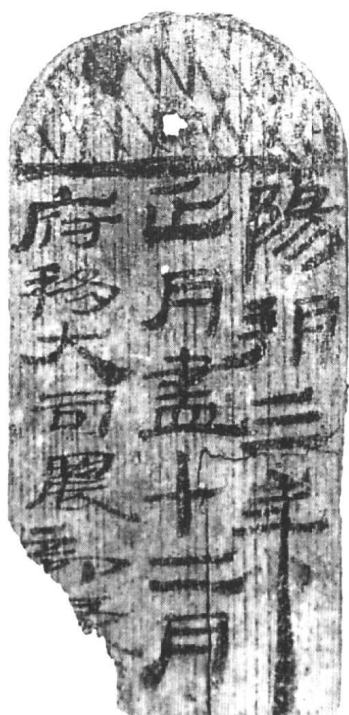 陽朔三年
正月盡十二月
府移大司農部